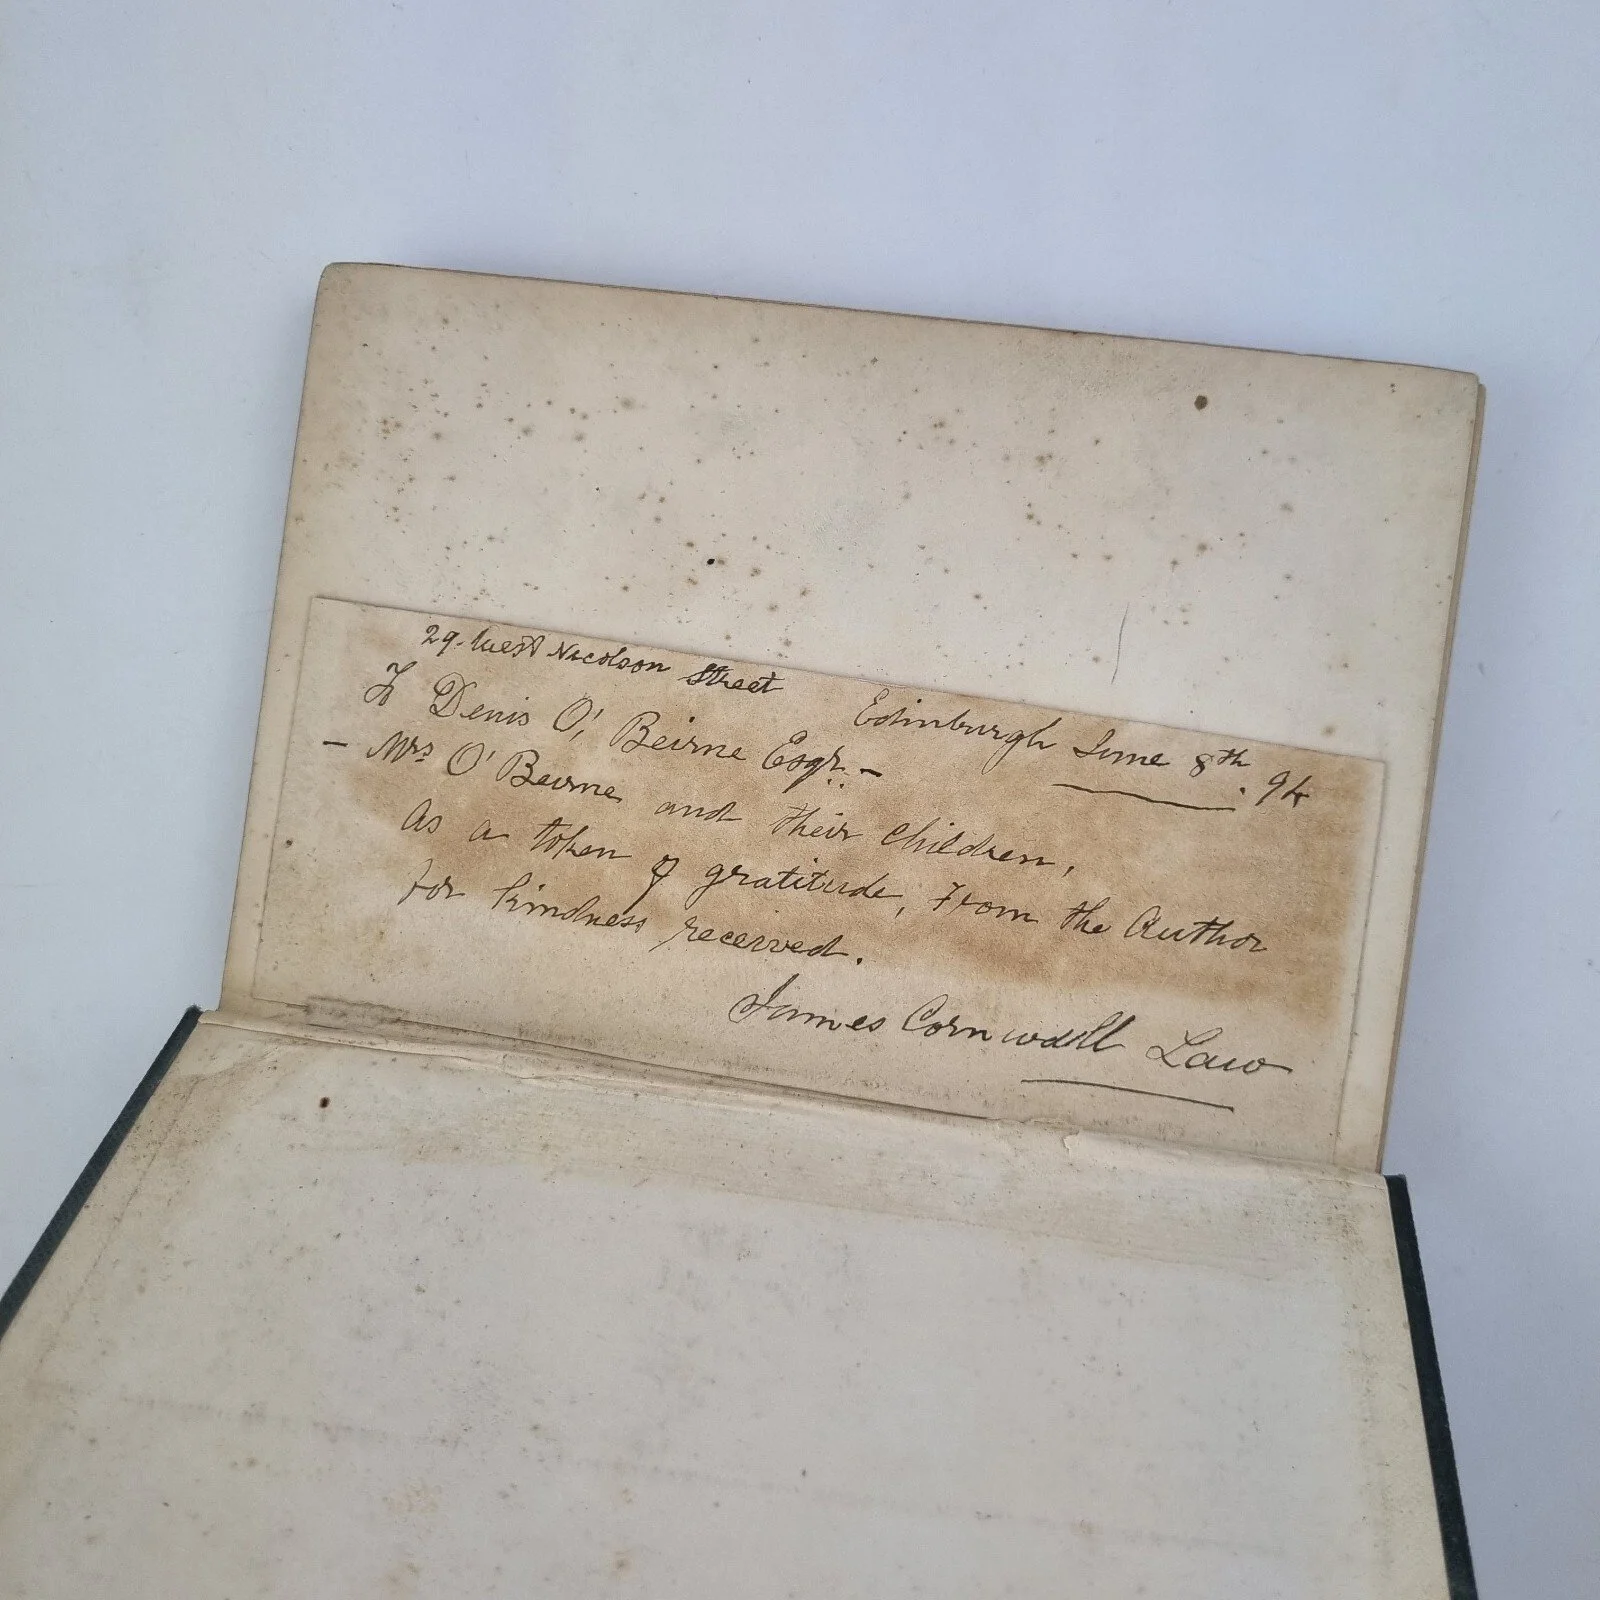 29. West Nicolson Street
Edinburgh June 8th. 94
To Denis O', Beirne Esqr. –
– Mrs O' Beirne and their children,
As a token of gratitude, from the Author
for kindness received.
James Cornwall Law